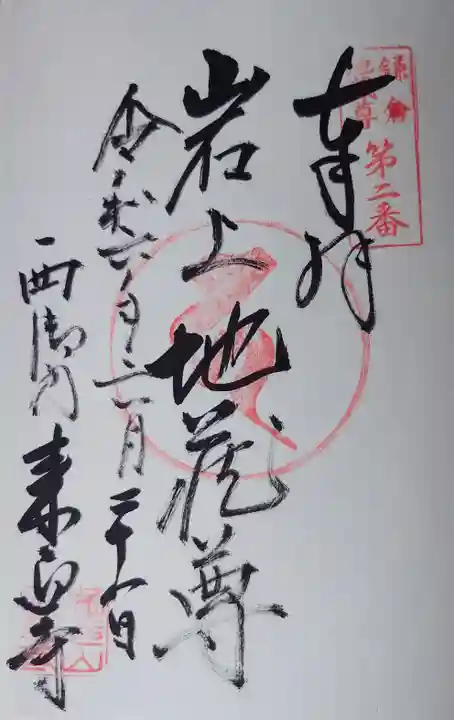 鎌倉
地蔵尊
第二番
奉拝
岩上地蔵尊
令和六年二月二十一日
西御門
来迎寺